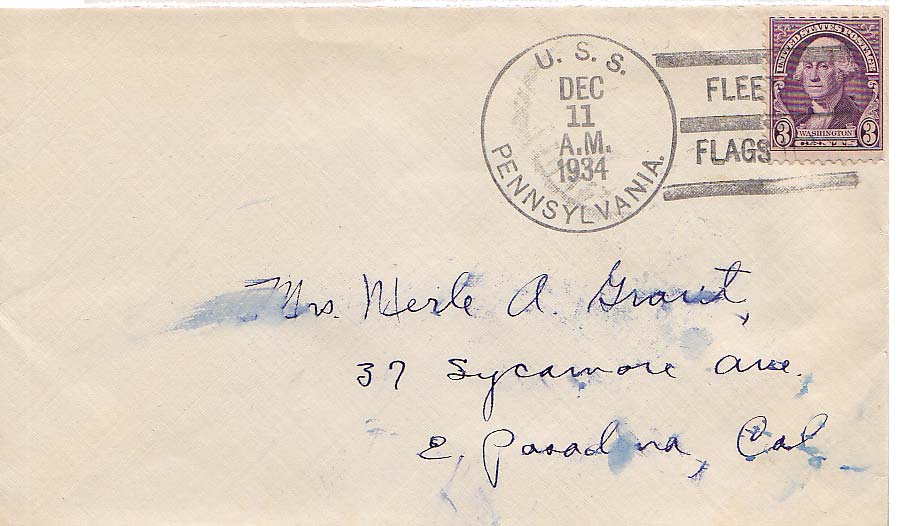 U. S. S.
DEC
11
A.M.
1934
PENNSYLVANIA.
FLEE
FLAGS
UNITED STATES POSTAGE
3 WASHINGTON 3
CENTS
Mrs. Merle A. Grant,
37 Sycamore Ave.
E. Pasadena, Cal